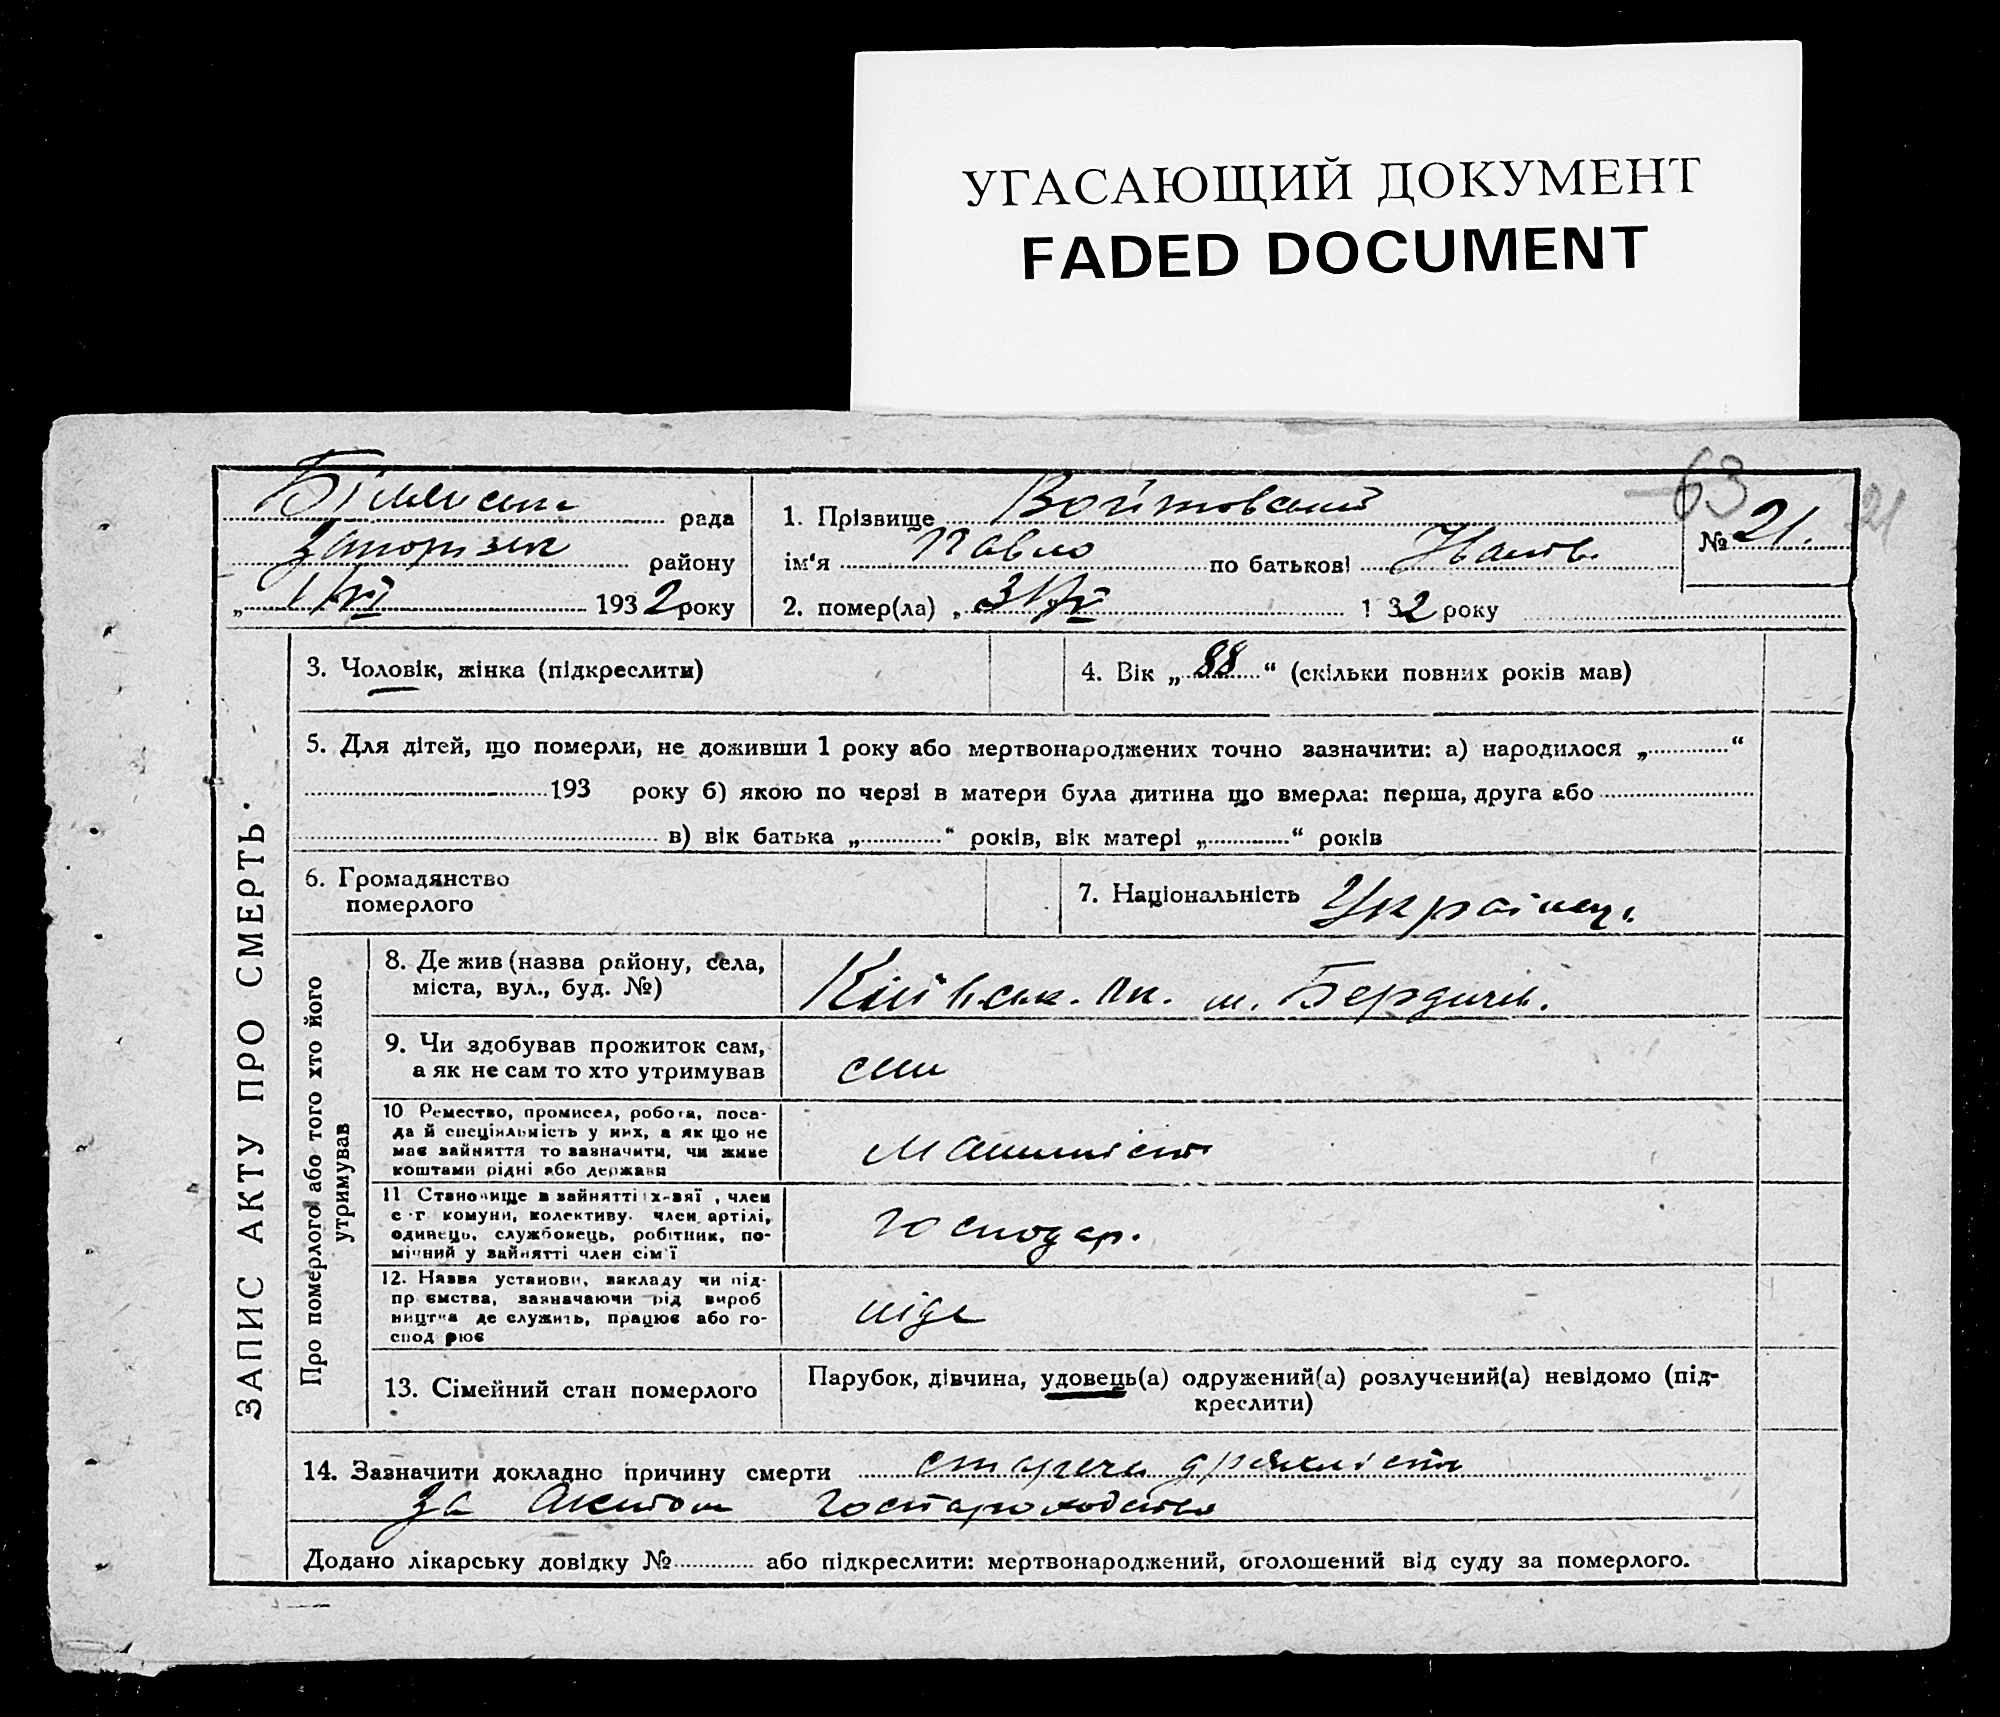 УГАСАЮЩИЙ ДОКУМЕНТ
FADED DOCUMENT
63
21
рада
району
„ 1/VI 1932 року
1. Прізвище Войтовський
№ 21.
ім'я Павло по батькові Іванов.
2. помер(ла) „ 31/V 1 32 року
ЗАПИС АКТУ ПРО СМЕРТЬ.
3. Чоловік, жінка (підкреслити)
4. Вік „ 88 “ (скільки повних років мав)
5. Для дітей, що померли, не доживши 1 року або мертвонароджених точно зазначити: а) народилося „ “
193 року б) якою по черзі в матери була дитина що вмерла: перша, друга або
в) вік батька „ “ років, вік матері „ “ років
6. Громадянство
померлого
7. Національність Українец.
Про померлого або того хто його
утримував
8. Де жив (назва району, села,
міста, вул., буд. №)
Київськ. ок. м. Бердичів.
9. Чи здобував прожиток сам,
а як не сам то хто утримував
сам
10 Ремество, промисел, робота, поса-
да й спеціяльність у них, а як що не
має зайняття то зазначити, чи живе
коштами рідні або держави
Машиніст
11 Становище в зайнятті х-вяї , член
с-г комуни, колективу. член артілі,
одинець, службовець, робітник, по-
мічний у зайнятті член сім'ї
господар.
12. Назва установи, закладу чи під-
пр ємства, зазначаючи рід вироб
ництва де служить, працює або го-
спод рює
13. Сімейний стан померлого
Парубок, дівчина, удовець(а) одружений(а) розлучений(а) невідомо (під-
креслити)
14. Зазначити докладно причину смерти стареча дряхлість
за Актом
Додано лікарську довідку № або підкреслити: мертвонароджений, оголошений від суду за померлого.